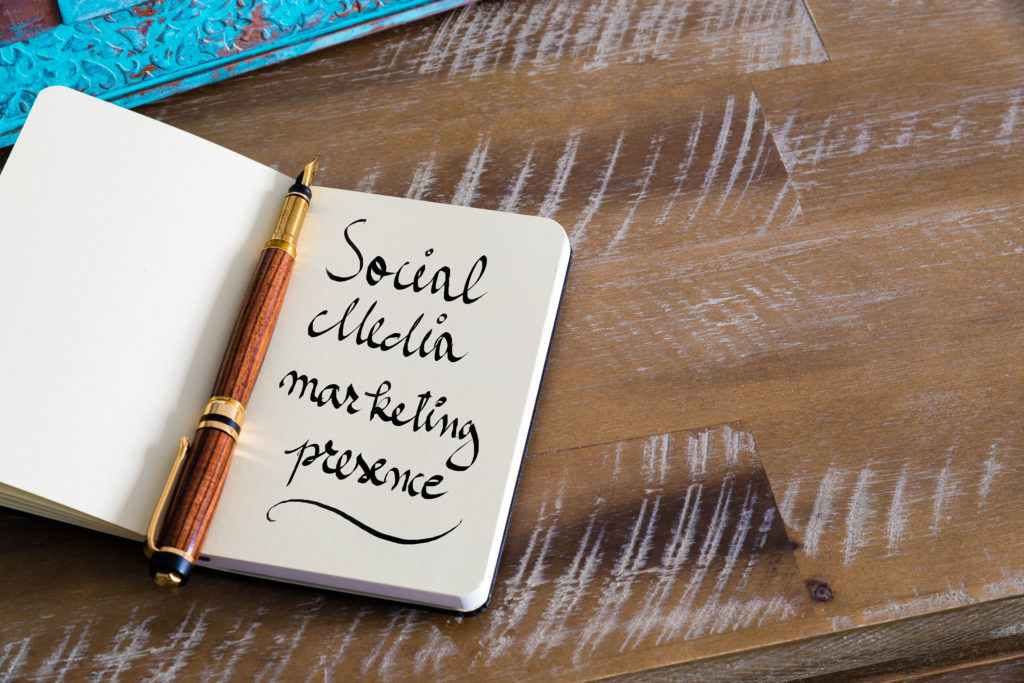 Social
Media
marketing
presence